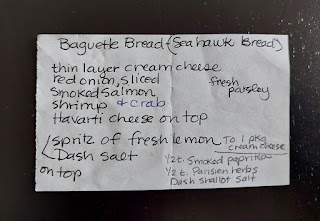 Baguette Bread (Seahawk Bread)
thin layer cream cheese
red onion, sliced
Smoked Salmon
fresh parsley
shrimp & crab
Havarti cheese on top
spritz of fresh lemon
Dash salt
on top
To 1 pkg cream cheese
1/2 t. Smoked paprika
1/2 t. Parisien herbs
Dash shallot salt